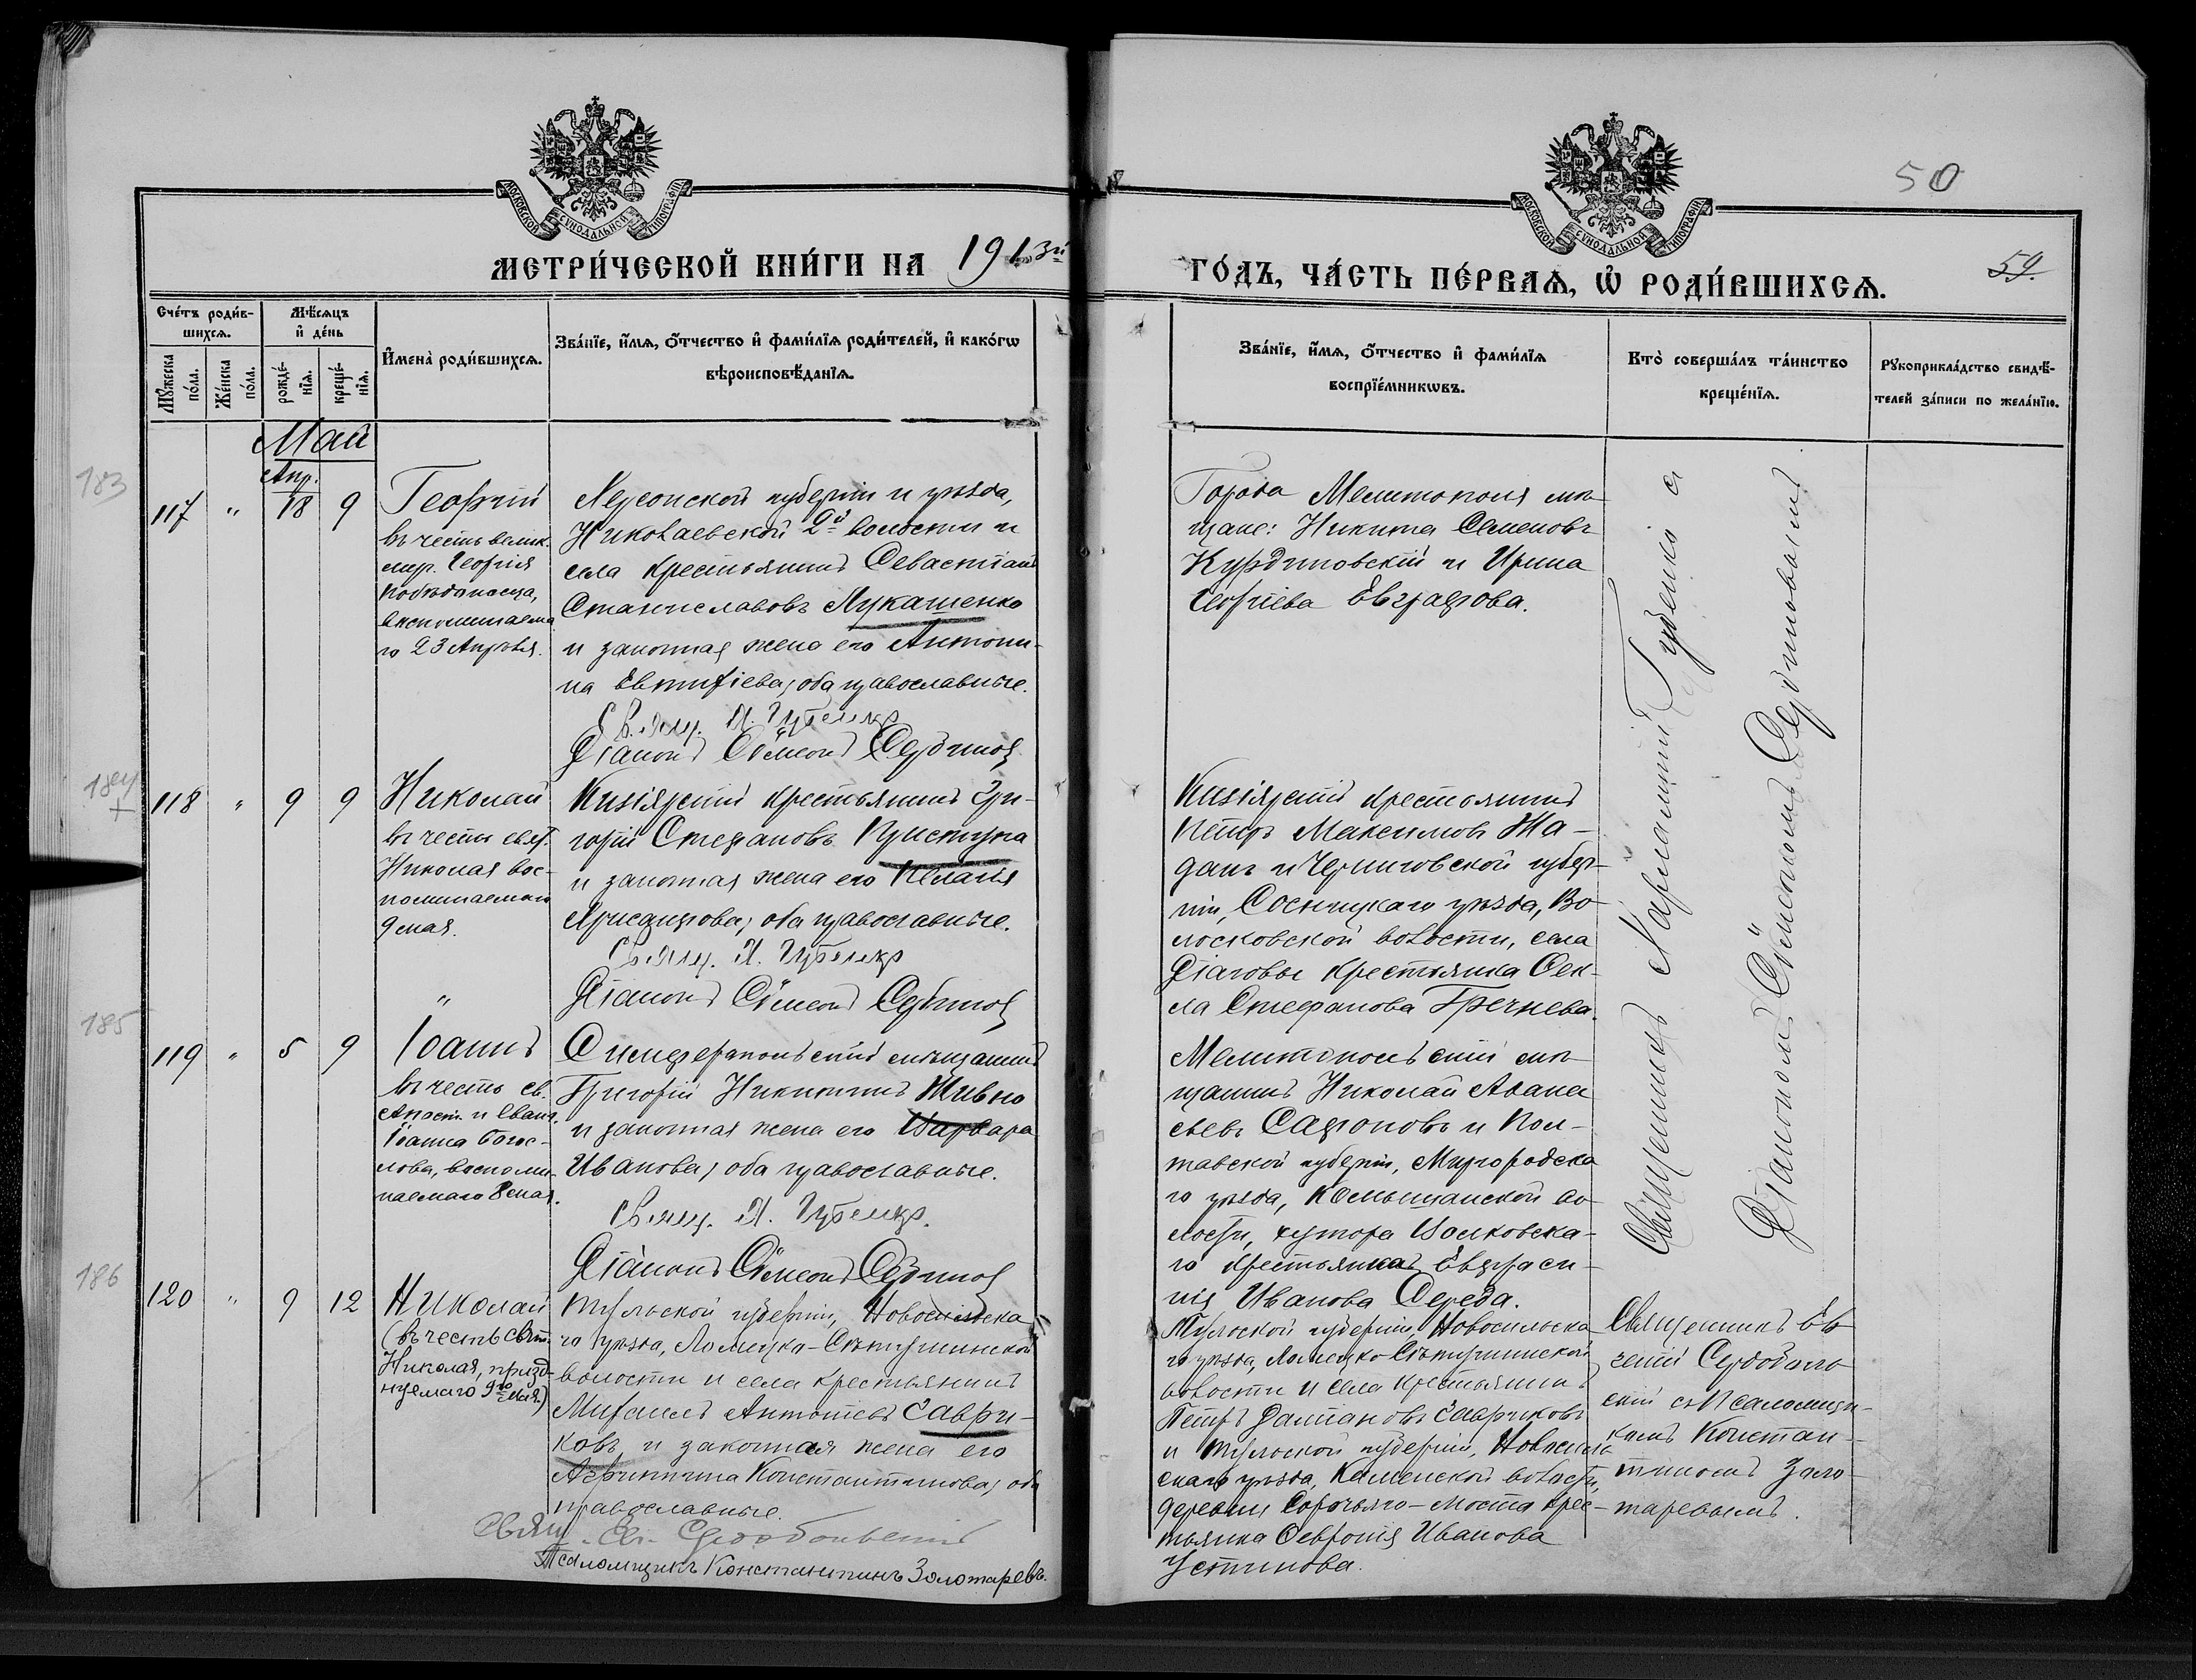 МОСКОВСКОЙ СѴНОДАЛЬНОЙ ТИПОГРАФІИ
МЕТРИ́ЧЕСКОЙ КНИ́ГИ НА 1913й
Сче́тъ роди́в-
шихсѧ.
Мѣ́сѧцъ
и҆ де́нь
Мꙋ́жеска
по́ла.
Же́нска
по́ла.
рожде́-
нїѧ.
креще́-
нїѧ.
И҆мена̀ роди́вшихсѧ.
Зва́нїе, и҆́мѧ, ѻ҆́тчество и҆ фами́лїѧ роди́телей, и҆ како́гѡ
вѣроисповѣ́данїѧ.
Май
Апр.
183
117 " 18 9
Георгій
въ честь велик.
муч. Георгія
Побѣдоносца,
вспоминаема
го 23 Апрѣля.
Херсонской губерніи и уѣзда,
Николаевской 2й волости и
села крестьянинъ Севастіанъ
Станиславовъ Лукашенко
и законная жена его Антони-
на Евтифіева, оба православные.
Свящ. Х. Губенко
Діаконъ Сѵмеонъ
184
+
118 " 9 9
Николай
въ честь свят.
Николая вос-
поминаемаго
9 мая.
Кизіярскій крестьянинъ Гри-
горій Стефановъ Приступа
и законная жена его Пелагія
Хрисанфова, оба православные.
Свящ. Х. Губенко
Діаконъ Сѵмеонъ
"
185
119 " 5 9
Іоаннъ
въ честь св.
Апост. и Еванг.
Іоанна Богос-
лова, воспоми-
наемаго 8 мая.
Симферопольскій мѣщанинъ
Григорій Никитинъ Живко
и законная жена его Варвара
Иванова, оба православные.
Свящ. Х. Губенко.
Діаконъ Сѵмеонъ
186
120 " 9 12
Николай
(въ честь Свят.
Николая, празд-
нуемаго 9го Мая.)
Тульской губерніи, Новосильска
го уѣзда, Ломецко-Скатушинской
волости и села крестьянинъ
Михаилъ Антоніевъ Саври-
ковъ, и законная жена его
Агриппина Константинова, оба
православные.
Свящ. Ев. Сердобольскій
Псаломщикъ Константинъ Золотаревъ.
50
МОСКОВСКОЙ СѴНОДАЛЬНОЙ ТИПОГРАФІИ
ГО́ДЪ, ЧА́СТЬ ПЕ́РВАѦ, Ѡ҆ РОДИ́ВШИХСѦ.
59.
Зва́нїе, и҆́мѧ, ѻ҆́тчество и҆ фами́лїѧ
воспрїе́мникѡвъ.
Кто̀ соверша́лъ та́инство
креще́нїѧ.
Рꙋкоприкла́дство свидѣ́-
телей за́писи по жела́нїю.
Города Мелитополя мѣ-
щане: Никита Семеновъ
Курдиновскій и Ирина
Георгіева Евграфова.
Кизіярскій крестьянинъ
Петръ Максимовъ Жа-
данъ и Черниговской губер-
ніи, Сосницкаго уѣзда, Во-
лосковской волости, села
Дяговы крестьянка Ѳек-
ла Стефанова Гречнева.
Мелитопольскій мѣ-
щанинъ Николай Аѳана
сьевъ Сафоновъ и Пол-
тавской губерніи, Миргородска
го уѣзда, Комышанской во-
лости, хутора Волковска-
го крестьянка Евфроси-
нія Иванова Середа.
Священникъ Харлампій Губенко съ
Діакономъ Сѵмеономъ
Тульской губерніи, Новосильска
го уѣзда, Ломецко-Скатушинской
волости и села крестьянинъ
Петръ Даміановъ Савриковъ
и Тульской губерніи, Новосиль
скаго уѣзда, Каменской волости,
деревни Сорочьяго-Моста крес-
тьянка Ѳевронія Иванова
Устинова.
Священникъ Ев
геній Сердоболь
скій съ Псаломщи-
комъ Констан-
тиномъ Золо-
таревымъ.